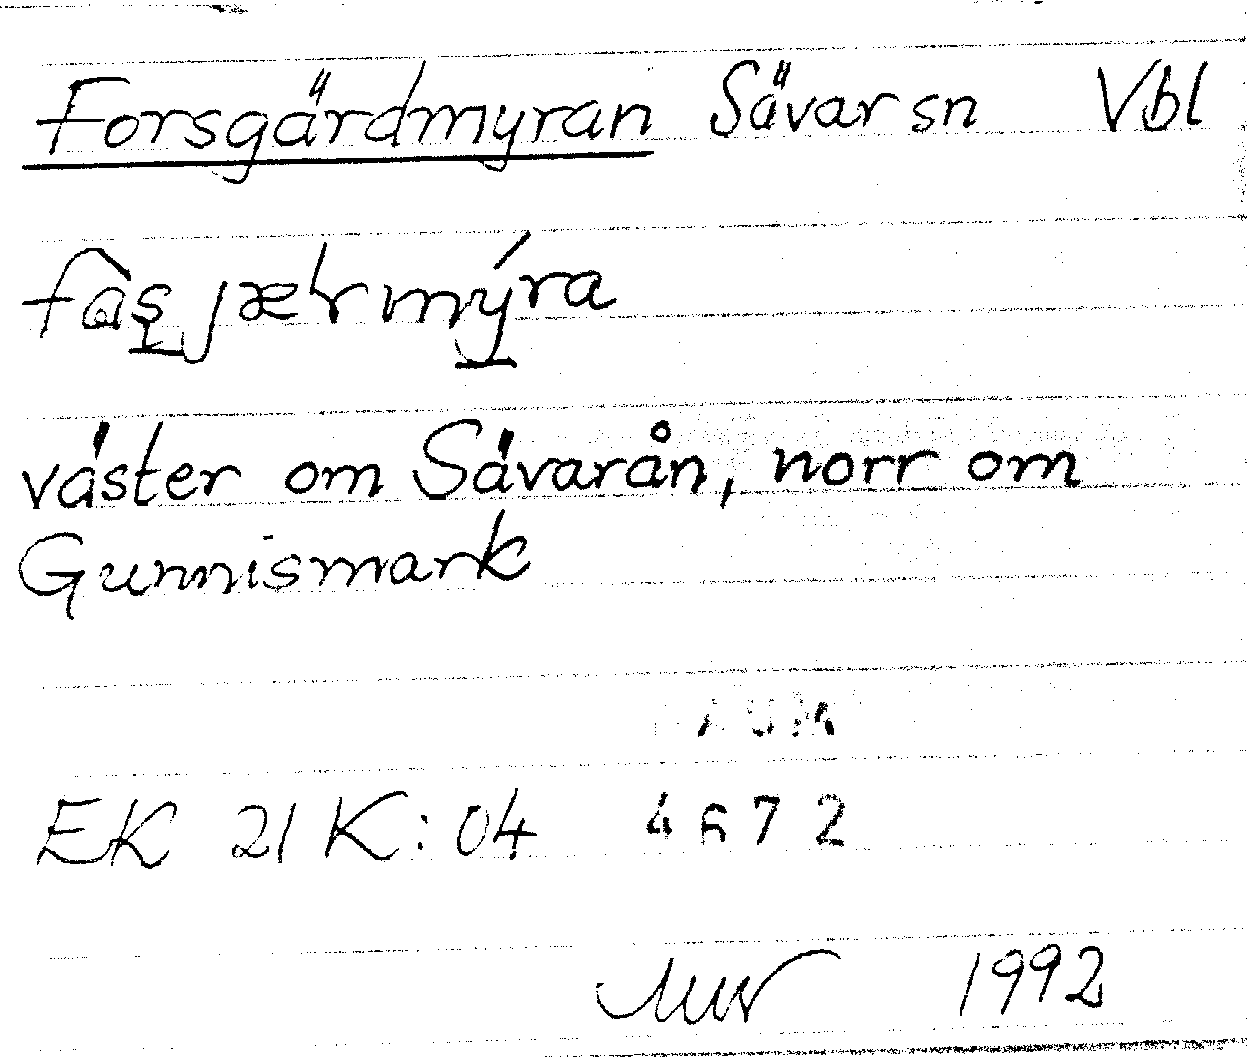 Forsgärdmyran Sävar sn Vbl
väster om Sävarån, norr om
Gunnismark
EK 21 K:04 4672
1992